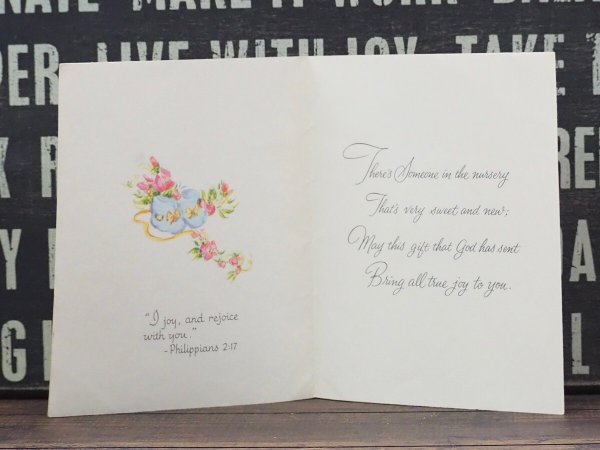 LIVE WITH JOY TAKE
"I joy, and rejoice
with you."
- Philippians 2:17
There's Someone in the nursery
That's very sweet and new;
May this gift that God has sent
Bring all true joy to you.